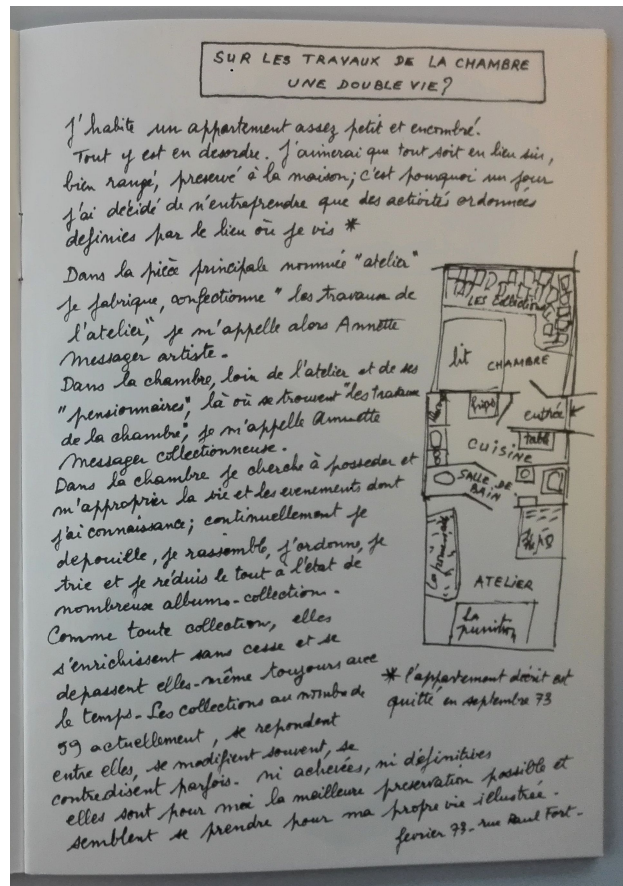 SUR LES TRAVAUX DE LA CHAMBRE
UNE DOUBLE VIE?
J'habite un appartement assez petit et encombré.
Tout y est en desordre. J'aimerai que tout soit en lieu sûr,
bien rangé, preservé à la maison; c'est pourquoi un jour
j'ai décidé de n'entreprendre que des activités ordonnées
definies par le lieu où je vis *
Dans la pièce principale nommée "atelier"
je fabrique, confectionne "les travaux de
l'atelier", je m'appelle alors Annette
Messager artiste.
Dans la chambre, loin de l'atelier et de ses
"pensionnaires", là où se trouvent "les travaux
de la chambre", je m'appelle Annette
Messager collectionneuse.
Dans la chambre je cherche à posseder et
m'approprier la vie et les evenements dont
j'ai connaissance; continuellement je
depouille, je rassemble, j'ordonne, je
trie et je réduis le tout à l'état de
nombreux albums-collection.
Comme toute collection, elles
s'enrichissent sans cesse et se
depassent elles-même toujours avec
le temps. Les collections au nombre de
59 actuellement, se repondent
entre elles, se modifient souvent, se
contredisent parfois. ni achevées, ni définitives
elles sont pour moi la meilleure preservation possible et
semblent se prendre pour ma propre vie illustrée.
fevrier 73 - rue Paul Fort -
LES collections
lit
CHAMBRE
frigo
entrée
table
CUISINE
SALLE DE
BAIN
ATELIER
La
punition
* l'appartement décrit est
quitté en septembre 73